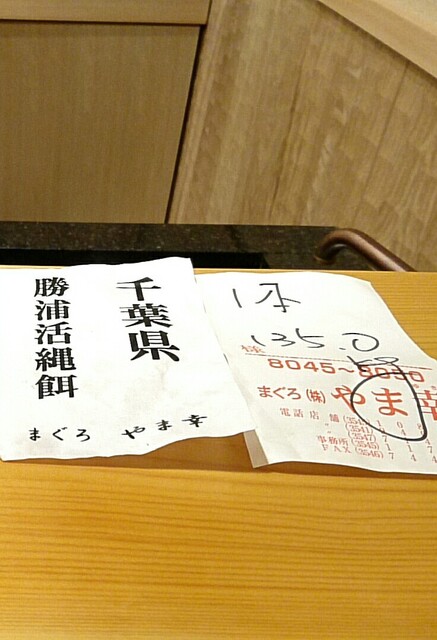 千葉県
勝浦活縄餌
まぐろ やま幸
1本
135.0
様
8045~8050
まぐろ(株)やま幸
電話店舗(354
〃(3541)
〃(3547)
事務所(3545)
FAX(3546)